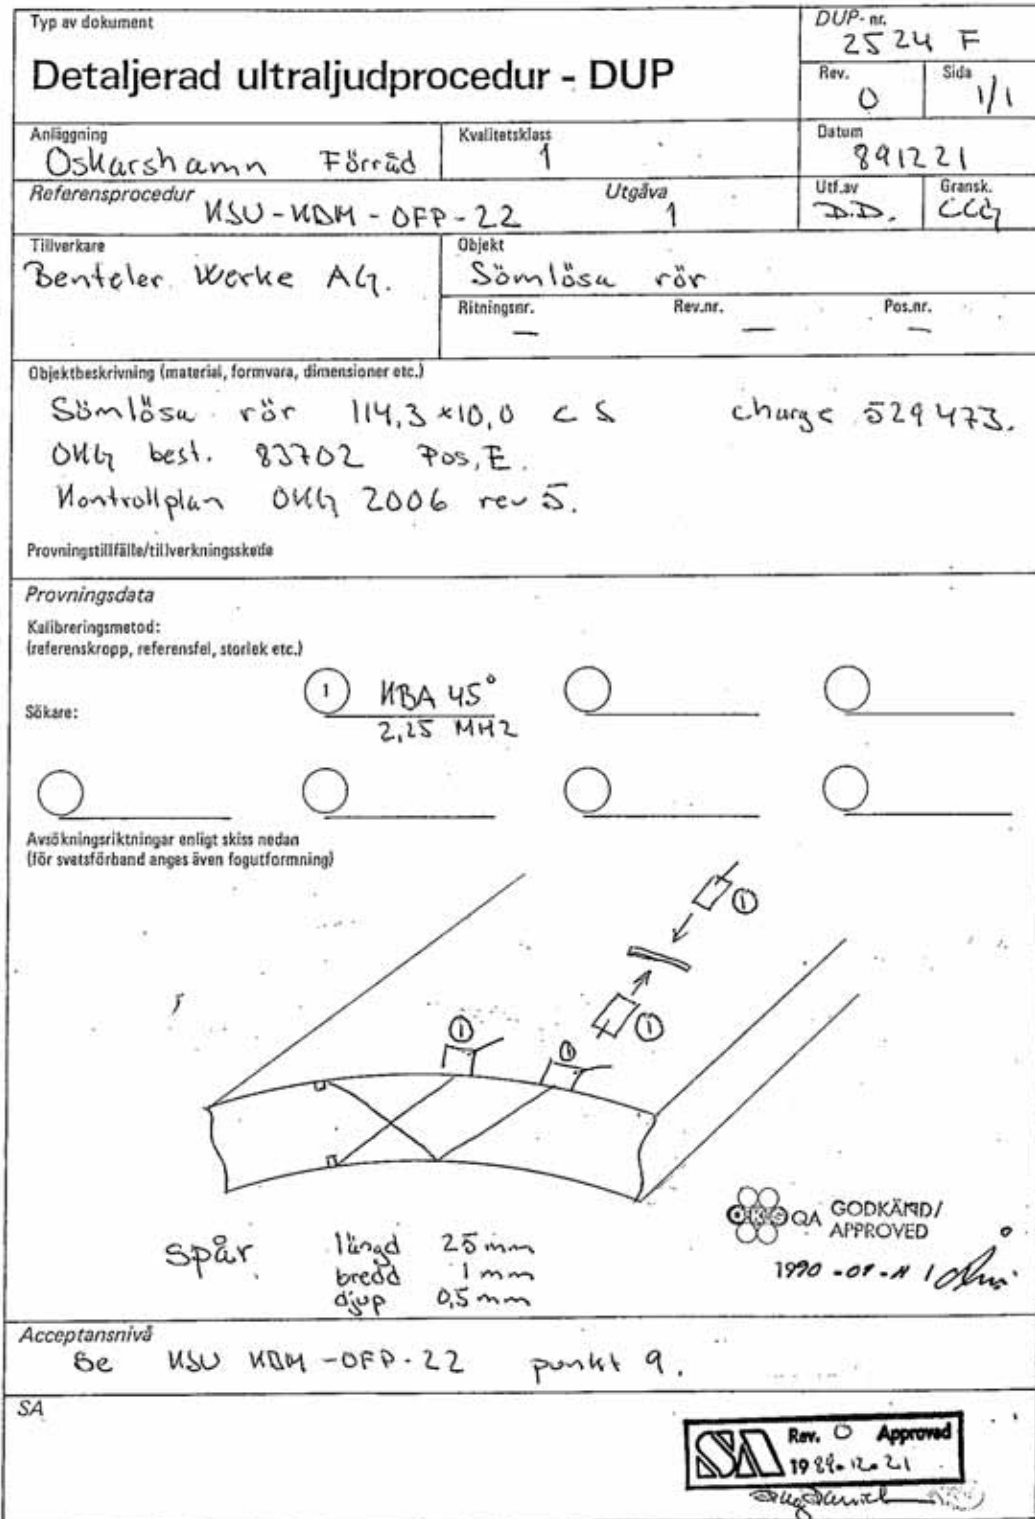 Typ av dokument
Detaljerad ultraljudprocedur - DUP
DUP- nr.
2524 F
Rev.
0
Sida
1/1
Anläggning
Oskarshamn Förråd
Kvalitetsklass
1
Datum
891221
Referensprocedur
KSU-KDM-OFP-22
Utgåva
1
Utf.av
D.D.
Gransk.
CCG
Tillverkare
Benteler Werke AG.
Objekt
Sömlösa rör
Ritningsnr.
—
Rev.nr.
—
Pos.nr.
—
Objektbeskrivning (material, formvara, dimensioner etc.)
Sömlösa rör 114,3 x10,0 C S charge 529473.
OKG best. 83702 Pos, E.
Kontrollplan OKG 2006 rev 5.
Provningstillfälle/tillverkningsskede
Provningsdata
Kalibreringsmetod:
(referenskropp, referensfel, storlek etc.)
Sökare:
1 KBA 45°
2,25 MHZ
Avsökningsriktningar enligt skiss nedan
(för svetsförband anges även fogutformning)
1
1
1
1
Spår.
längd 25 mm
bredd 1 mm
djup 0,5 mm
OKG QA GODKÄND/
APPROVED
Acceptansnivå
Se KSU KDM -OFP-22 punkt 9.
SA
SA Rev. 0 Approved
1989-12-21